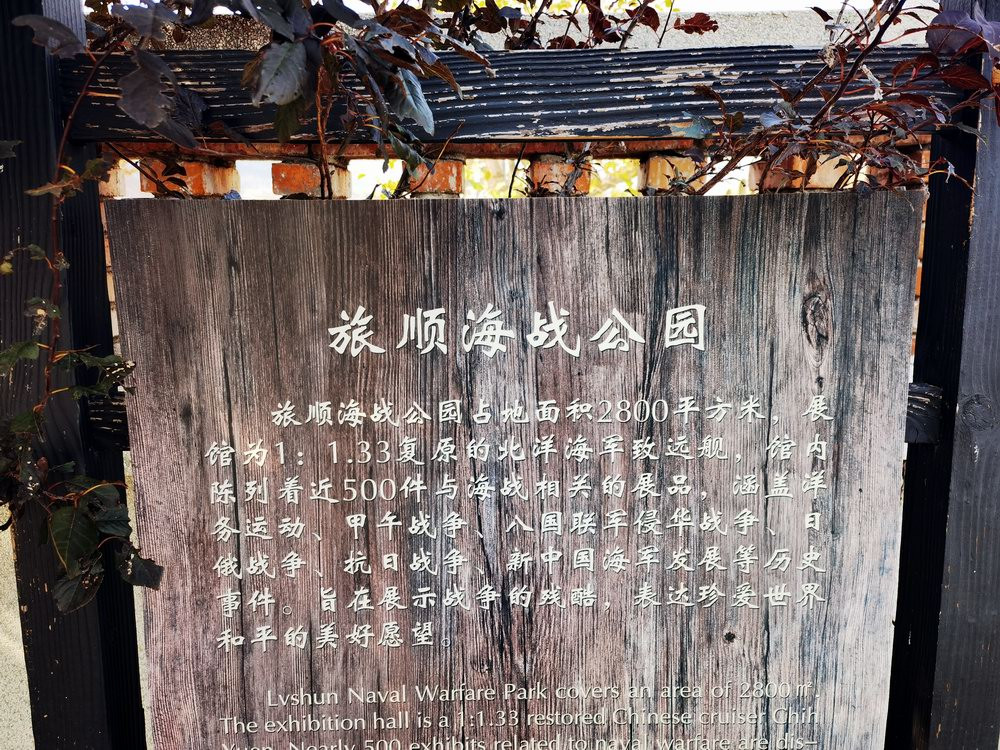 旅顺海战公园
旅顺海战公园占地面积2800平方米，展
馆为1：1.33复原的北洋海军致远舰，馆内
陈列着近500件与海战相关的展品，涵盖洋
务运动、甲午战争、八国联军侵华战争、日
俄战争、抗日战争、新中国海军发展等历史
事件。旨在展示战争的残酷，表达珍爱世界
和平的美好愿望。
Lvshun Naval Warfare Park covers an area of 2800㎡.
The exhibition hall is a 1:1.33 restored Chinese cruiser Chih
Yuen. Nearly 500 exhibits related to naval warfare are dis-